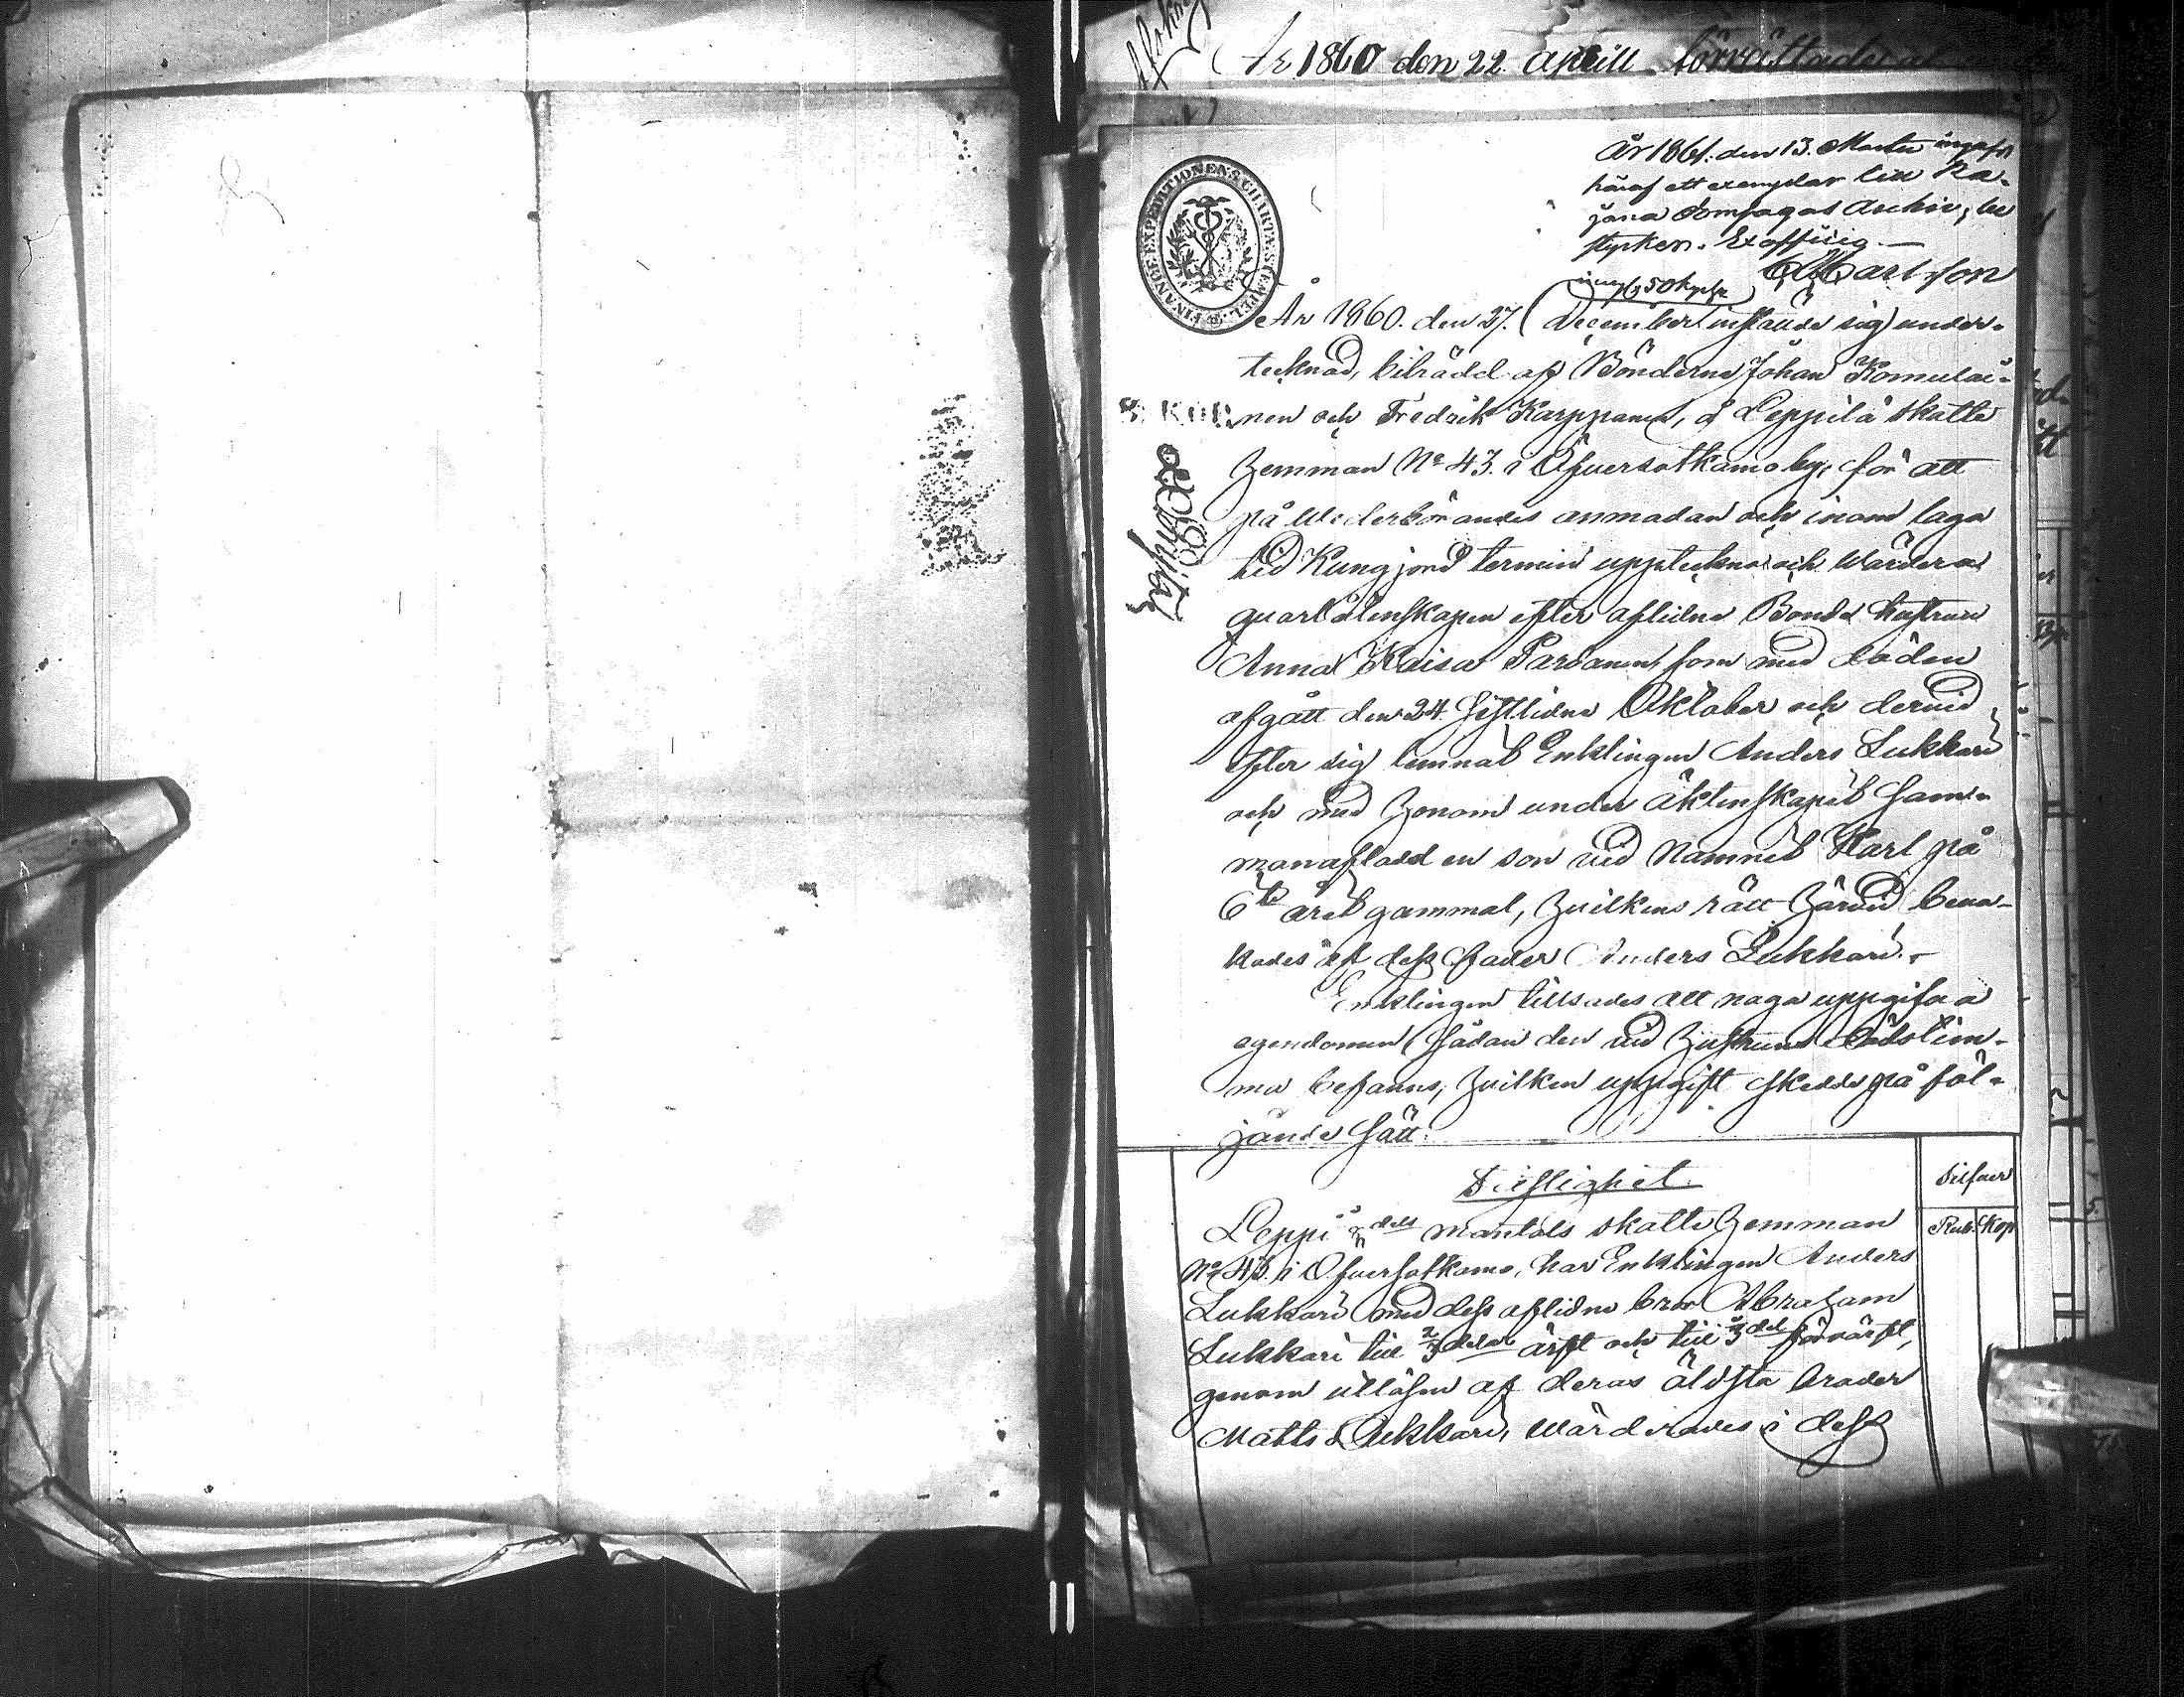 År 1860 den 22 aprill förrättades
År 1861. den 13. Martii ingaft
häraf ett exemplar till Ka-
jana Domsagas Archiv, be
styrker. Ex officio.
Carlson
FINANCE-EXPEDITIONENS CHARTÆ-STEMPEL
År 1860. den 27. December instälde sig under-
tecknad, biträdd af Bönderne Johan Komulai-
nen och Fredrik Karppanen, å Leppilä skatte
hemman No 43. i Öfversotkamo by, för att
på wederbörandes anmodan och inom laga
tid Kungjord termin uppteckna och wärdera
quarlåtenskapen efter aflidne Bonde hustrun
Anna Kaisa Parvanen, som med döden
afgått den 24. sistlidne Oktober och dervid
efter sig lemnat Enklingen Anders Lukkari
och med honom under äktenskapet sam-
manaflad en son vid Namnet Karl på
6te året gammal, hvilkens rätt härvid beva-
kades af dess fader Anders Lukkari.-
Enklingen tillsades att noga uppgifva
egendomen sådan den vid hustruns dödstim-
ma befanns, hvilken uppgift skedde på föl-
jande sätt:
Fastighet.
Silfver
Rub. Kop
Leppi dels mantals skatte hemman
No 43. i Öfversotkamo, har Enklingen Anders
Lukkari med dess aflidne bror Abraham
Lukkari till 2/3 delar ärft och till 1/3 del förvärft,
genom utlösen af deras äldsta broder
Matts Lukkari, wärderades i dess